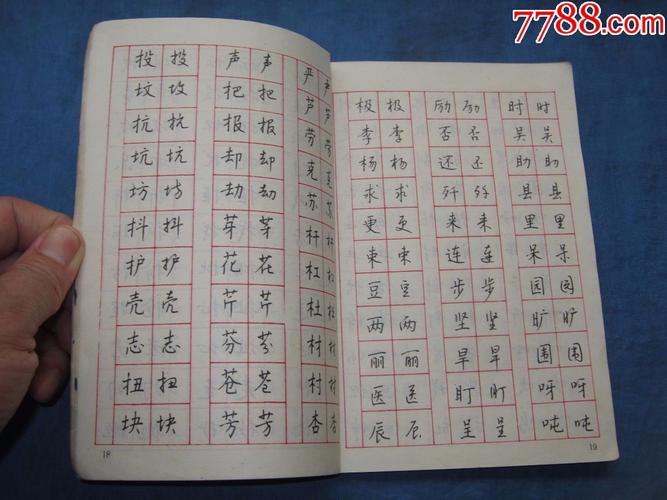 7788.com
投 投
坟 坟
抗 抗
坑 坑
坊 坊
抖 抖
护 护
壳 壳
志 志
扭 扭
块 块
声 声
把 把
报 报
却 却
劫 劫
芽 芽
花 花
芹 芹
芬 芬
苍 苍
芳 芳
严 严
芦 芦
劳 劳
克 克
苏 苏
杆
杠
杜
材
村
杏 杏
18
极 极
李 李
杨 杨
求 求
更 更
束 束
豆 豆
两 两
丽 丽
医 医
辰 辰
励 励
否 否
还 还
歼 歼
来 来
连 连
步 步
坚 坚
旱 旱
盯 盯
呈 呈
时 时
吴 吴
助 助
县 县
里 里
呆 呆
园 园
旷 旷
围 围
呀 呀
吨 吨
19